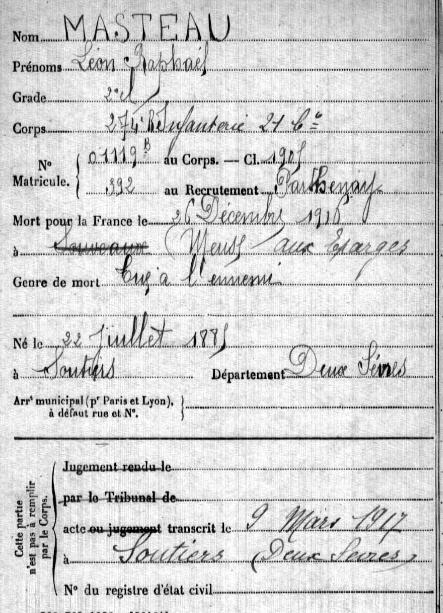 Nom MASTEAU
Prénoms Léon Raphaël
Grade 2e cl
Corps 274e R Infanterie 21 Cie
No Matricule. 01119B au Corps. — Cl. 1905
392 au Recrutement Parthenay
Mort pour la France le 26 Décembre 1916
à Souveaux (Meuse) aux Eparges
Genre de mort Tué à l'ennemi
Né le 22 Juillet 1885
à Soutiers Département Deux Sèvres
Arrt municipal (pr Paris et Lyon),
à défaut rue et No.
Cette partie n'est pas à remplir par le Corps.
Jugement rendu le
par le Tribunal de
acte ou jugement transcrit le 9 Mars 1917
à Soutiers (Deux Sèvres)
No du registre d'état civil